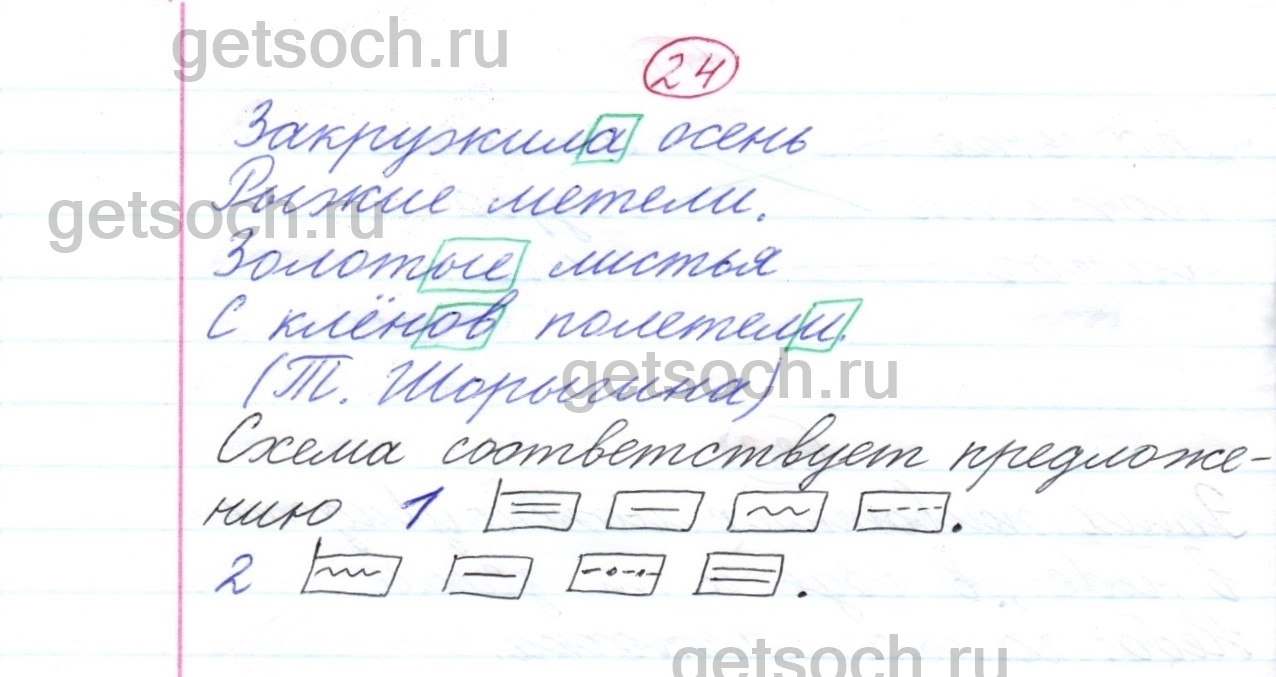 getsoch.ru
24
Закружила осень
Рыжие метели.
getsoch.ru
Золотые листья
С клёнов полетели.
getsoch.ru
(Т. Шорыгина)
Схема соответствует предложе-
нию 1
2
getsoch.ru